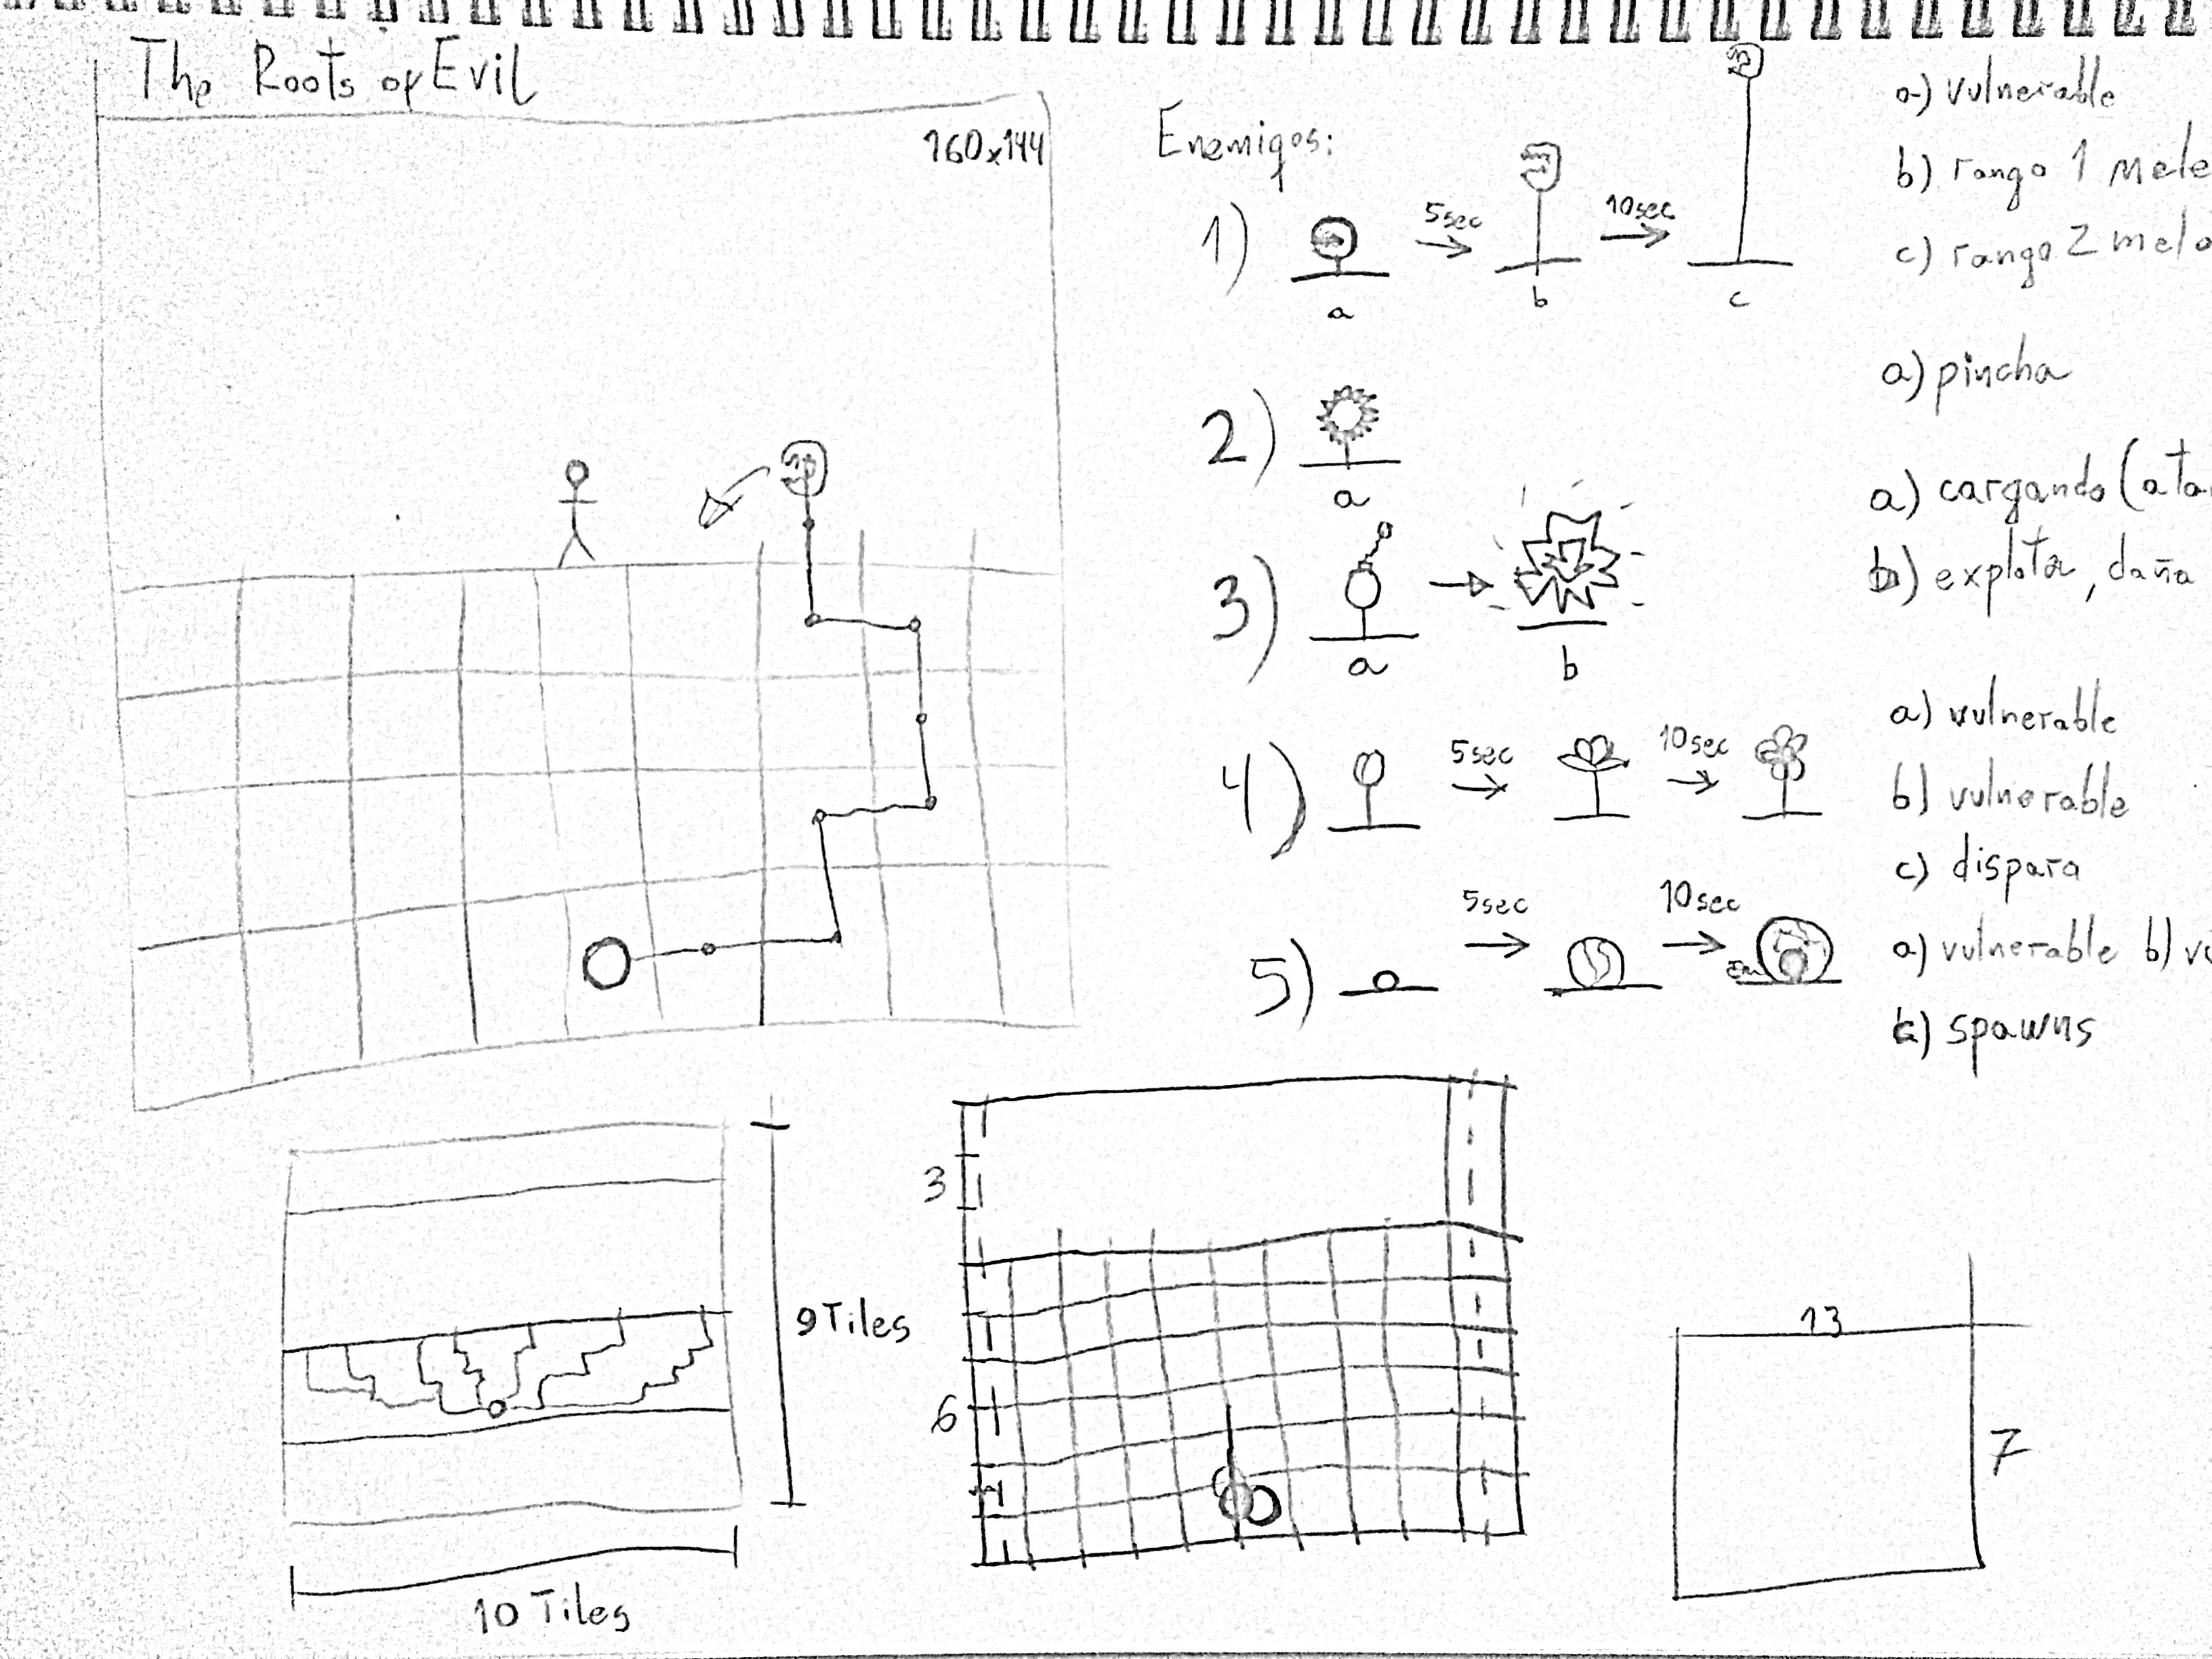 The Roots of Evil
160x144
Enemigos:
1)
5sec
10sec
a
b
c
a) vulnerable
b) rango 1 mele
c) rango 2 mele
2)
a
a) pincha
3)
a
b
a) cargando (ata
b) explota, daña
4)
5sec
10sec
a) vulnerable
b) vulnerable
c) dispara
5)
5sec
10sec
a) vulnerable b) vu
c) spawns
9 Tiles
10 Tiles
3
6
13
7